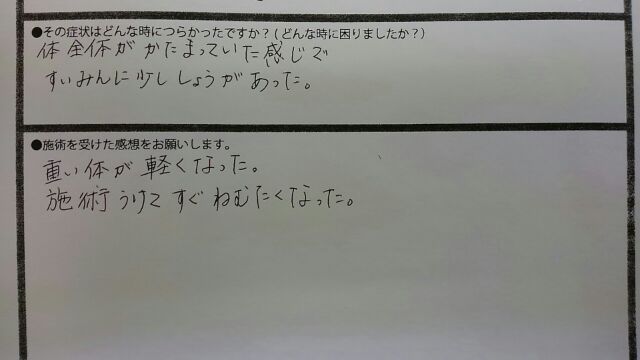 ●その症状はどんな時につらかったですか？(どんな時に困りましたか？)
体全体がかたまっていた感じで
すいみんに少ししょうがあった。
●施術を受けた感想をお願いします。
重い体が軽くなった。
施術うけてすぐねむたくなった。